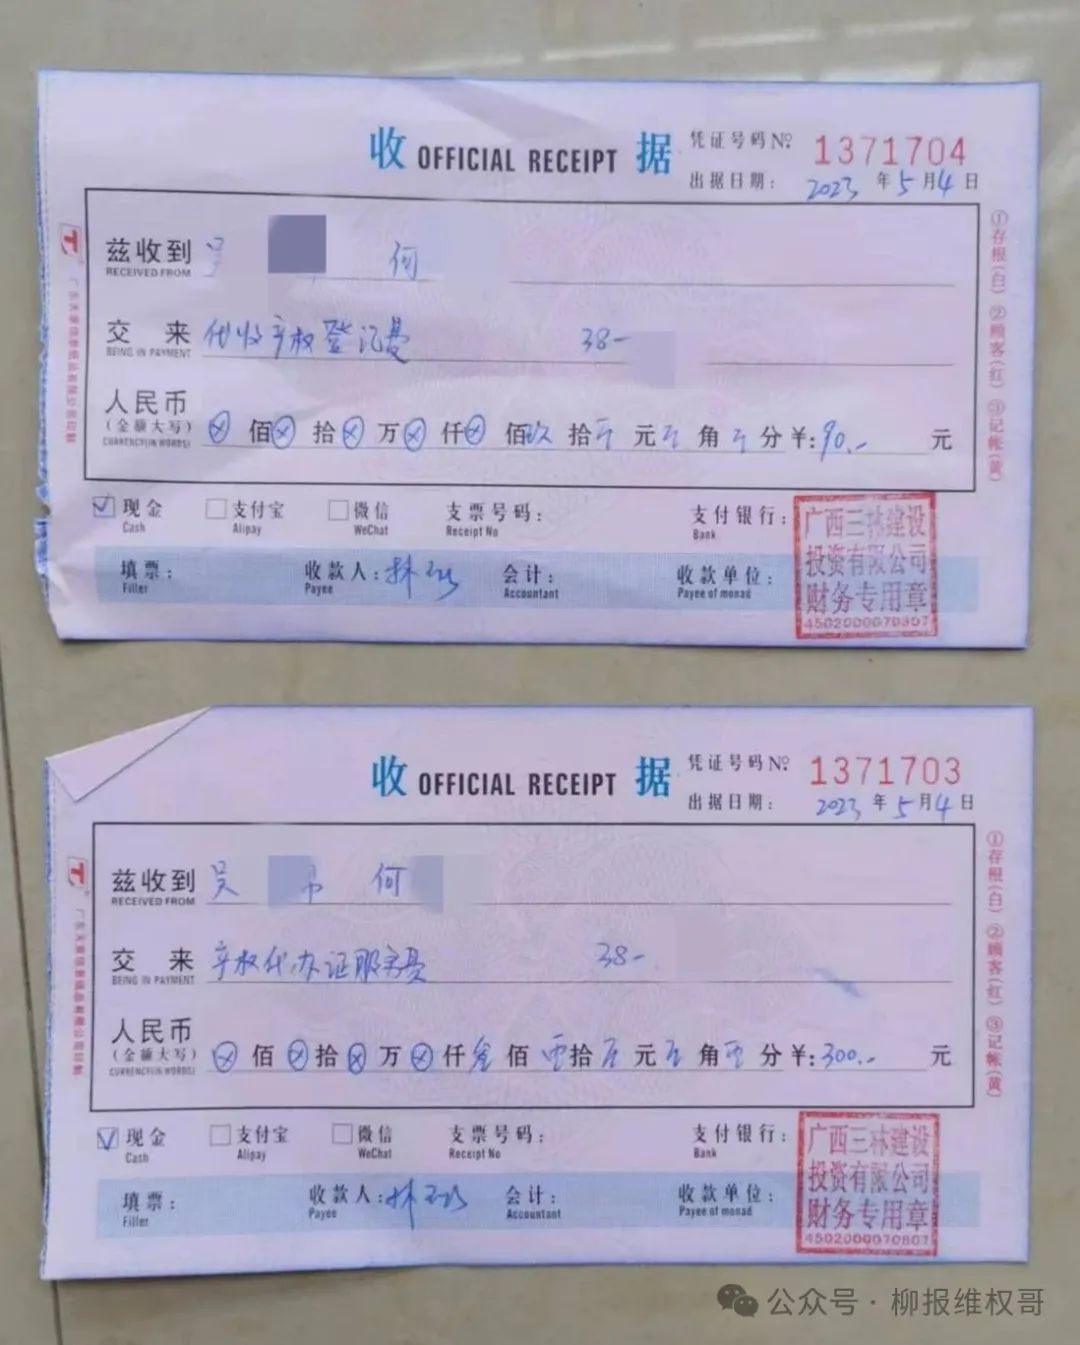 收 OFFICIAL RECEIPT 据 凭证号码№ 1371704
出据日期： 2023 年 5 月 4 日
兹收到 吴 何
RECEIVED FROM
交 来 代收产权登记费 38-
BEING IN PAYMENT
人民币
(金额大写) ⊗ 佰 ⊗ 拾 ⊗ 万 ⊗ 仟 ⊗ 佰 玖 拾 元 角 分 ¥: 90.- 元
CURRENCY(IN WORDS)
☑ 现金 □ 支付宝 □ 微信 支票号码： 支付银行：
Cash Alipay WeChat Receipt No Bank
填票： 收款人： 会计： 收款单位：
Filler Payee Accountant Payee of monad
广西三林建设
投资有限公司
财务专用章
①存根(白) ②顾客(红) ③记帐(黄)
收 OFFICIAL RECEIPT 据 凭证号码№ 1371703
出据日期： 2023 年 5 月 4 日
兹收到 吴 何
RECEIVED FROM
交 来 产权代办证服务费 38-
BEING IN PAYMENT
人民币
(金额大写) ⊗ 佰 ⊗ 拾 ⊗ 万 ⊗ 仟 叁 佰 零 拾 元 角 分 ¥: 300.- 元
CURRENCY(IN WORDS)
☑ 现金 □ 支付宝 □ 微信 支票号码： 支付银行：
Cash Alipay WeChat Receipt No Bank
填票： 收款人： 会计： 收款单位：
Filler Payee Accountant Payee of monad
广西三林建设
投资有限公司
财务专用章
①存根(白) ②顾客(红) ③记帐(黄)
公众号 · 柳报维权哥